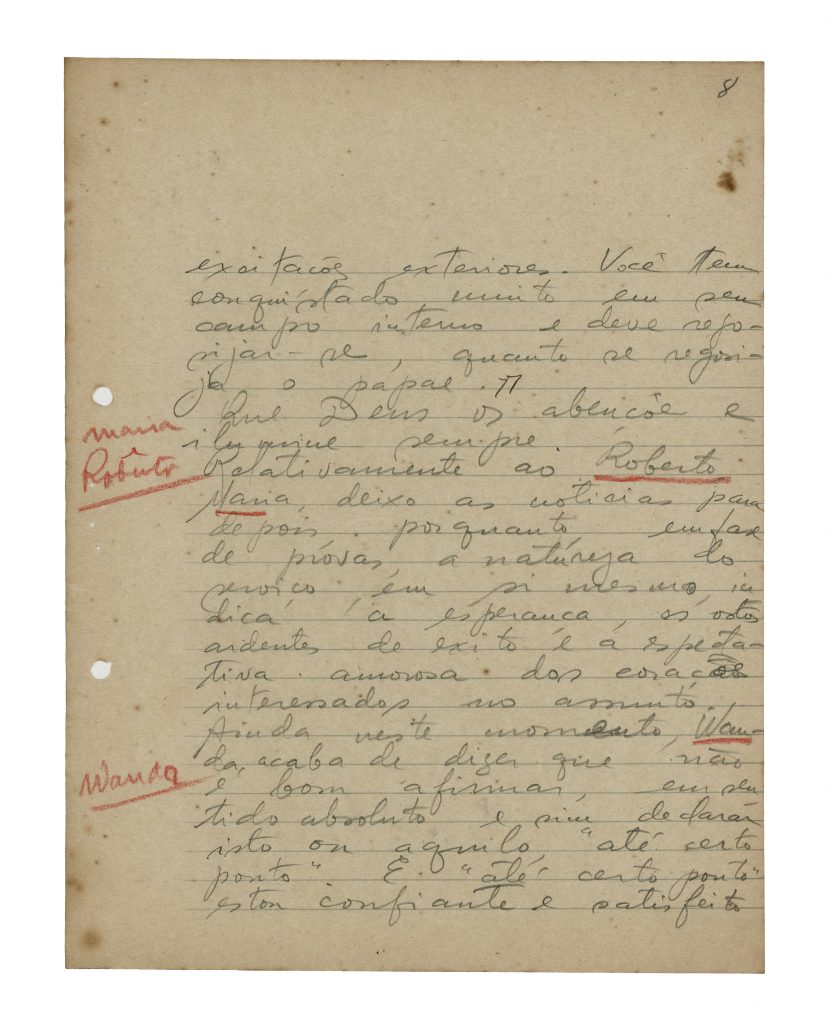 8
excitacões exteriores. Você tem
conquistado muito em seu
campo interno e deve rego-
sijar-se, quanto se regosi-
ja o papae.
Que Deus os abençõe e
ilumine sempre.
Relativamente ao Roberto
Maria, deixo as noticias para
depois porquanto, em face
de próvas, a natureza do
serviço em si mesmo, in
dica a esperanca, os votos
ardentes de exito e a especta-
tiva amorosa dos corações
interessados no assunto.
Ainda neste momento, Wan-
da, acaba de dizer que não
é bom afirmar, em sen
tido absoluto e sim declarar
isto ou aquilo "até certo
ponto" E "até certo ponto"
estou confiante e satisfeito
Maria
Roberto
Wanda